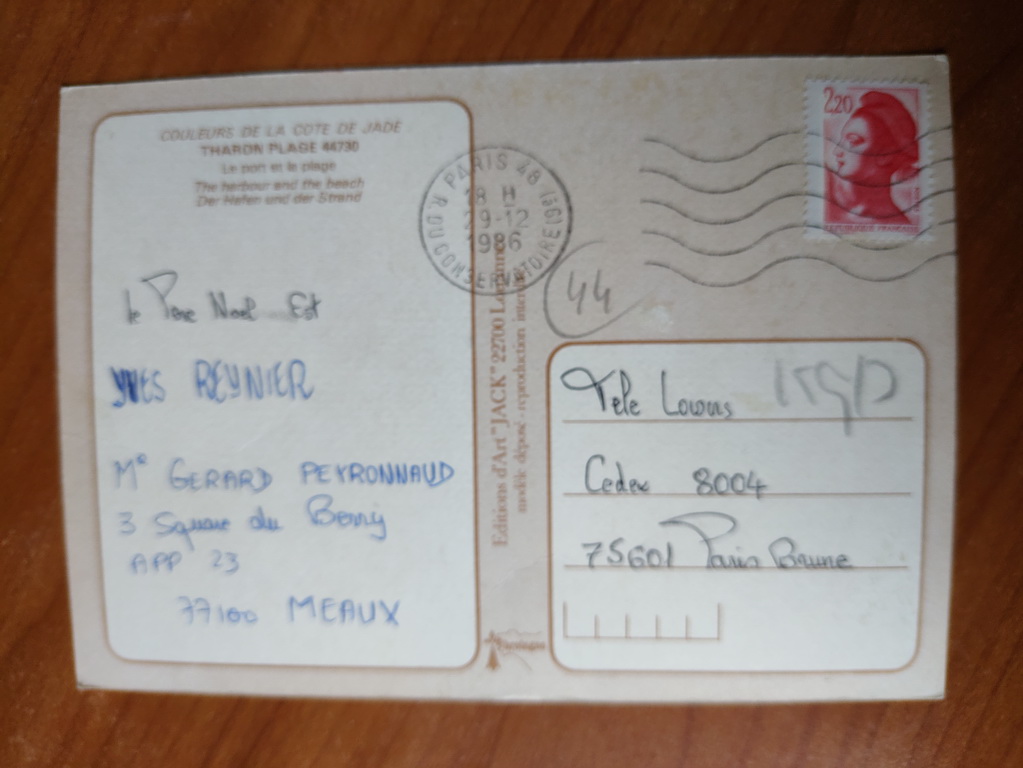 COULEURS DE LA COTE DE JADE
THARON PLAGE 44730
Le port et la plage
The harbour and the beach
Der Hafen und der Strand
le Père Noel Est
YVES REYNIER
Mr GERARD PEYRONNAUD
3 Square du Berry
APP 23
77100 MEAUX
Editions d'Art "JACK" 22700
modèle déposé - reproduction
PARIS 48
R. DU CONSERVATOIRE
18 H
19-12
1986
2,20
REPUBLIQUE FRANCAISE
44
Tele
Cedex 8004
75601 Paris Brune